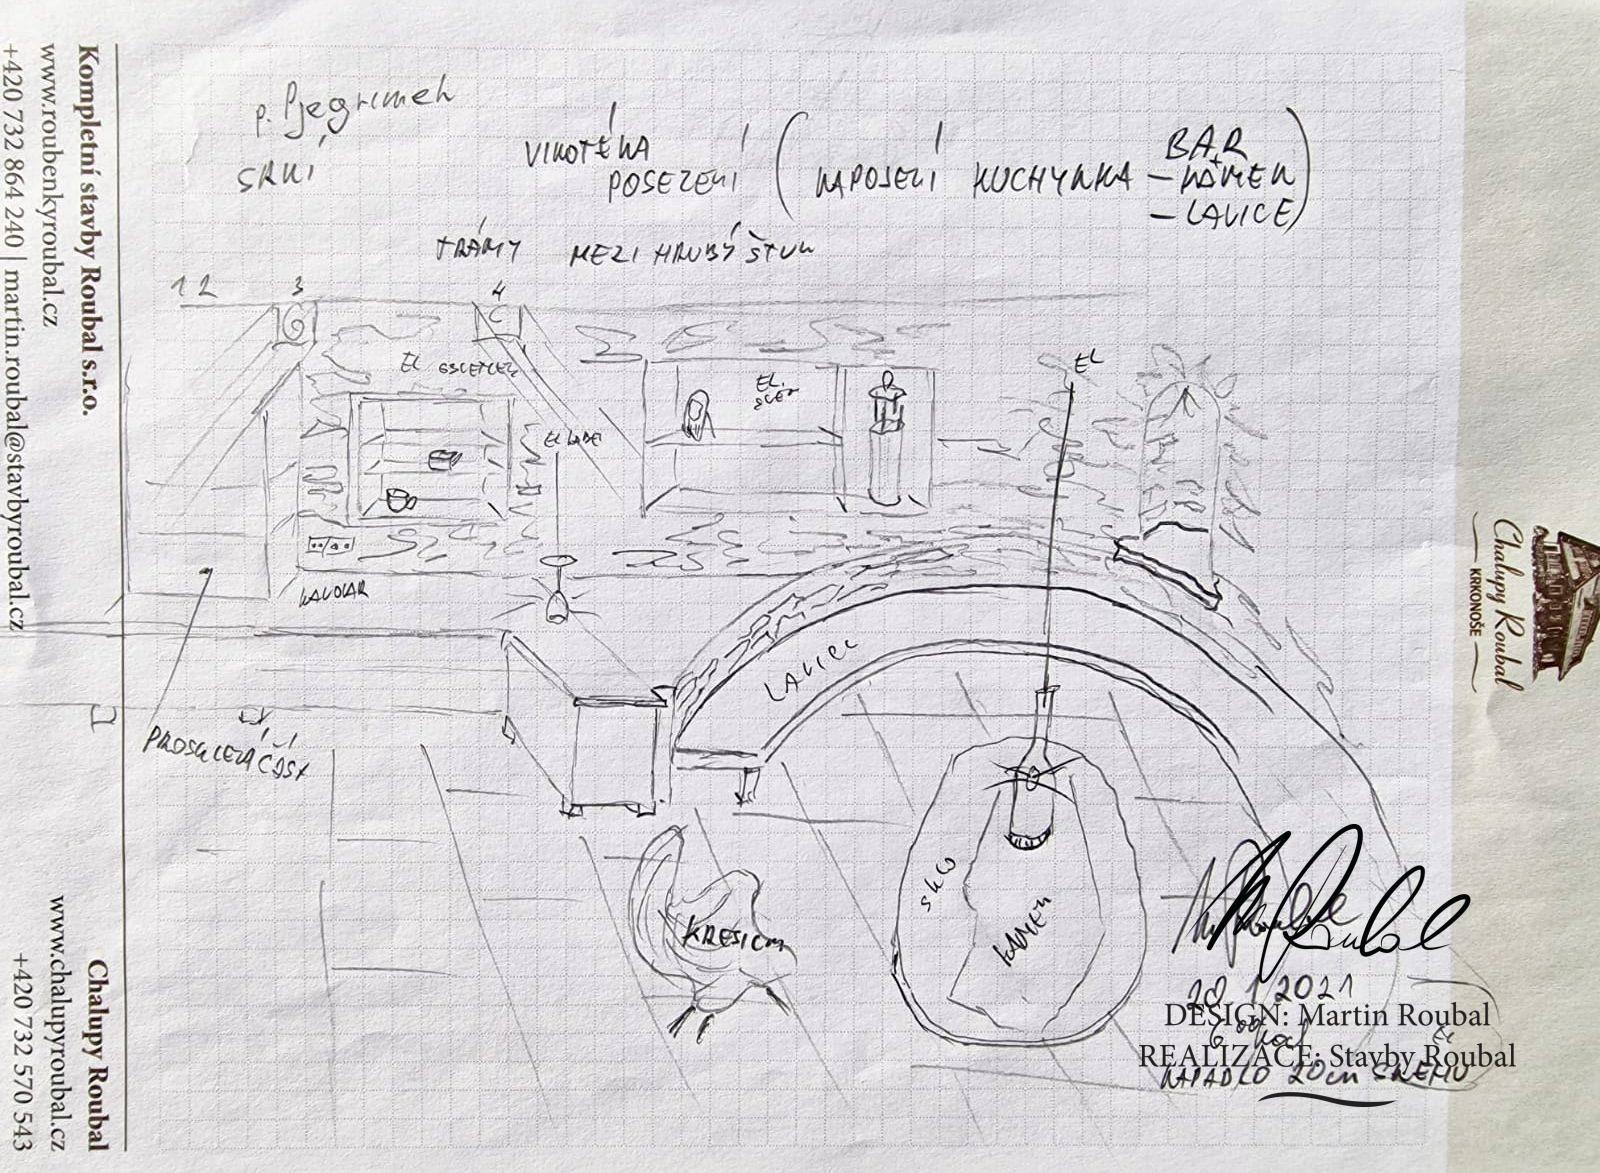 Kompletní stavby Roubal s.r.o.
www.roubenkyroubal.cz
+420 732 864 240 | martin.roubal@stavbyroubal.cz
Chalupy Roubal
www.chalupyroubal.cz
+420 732 570 543
p.
SRNÍ
VINOTÉKA
POSEZENÍ
(NAPOJENÍ KUCHYNKA BAR
+
– KÁMEN
– LAVICE)
TRÁMY MEZI HRUBÝ ŠTUK
1 2 3 4
EL
EL
EL.
EL
LAVICE
PROSKLENÁ ČÁST
SKLO
KÁMEN
KRESLO
20 1 2021
6 00 hod.
NAPADLO 20cm SNĚHU
DESIGN: Martin Roubal
REALIZACE: Stavby Roubal
Chalupy Roubal
KRKONOŠE